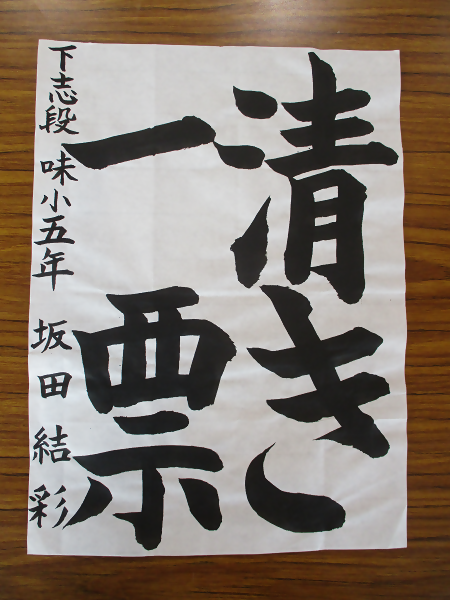 清き
一票
下志段味小五年 坂田結彩